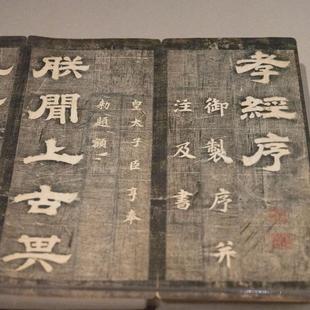 孝經序
御製序并
注及書
皇太子臣亨奉
勑題額
朕聞上古其